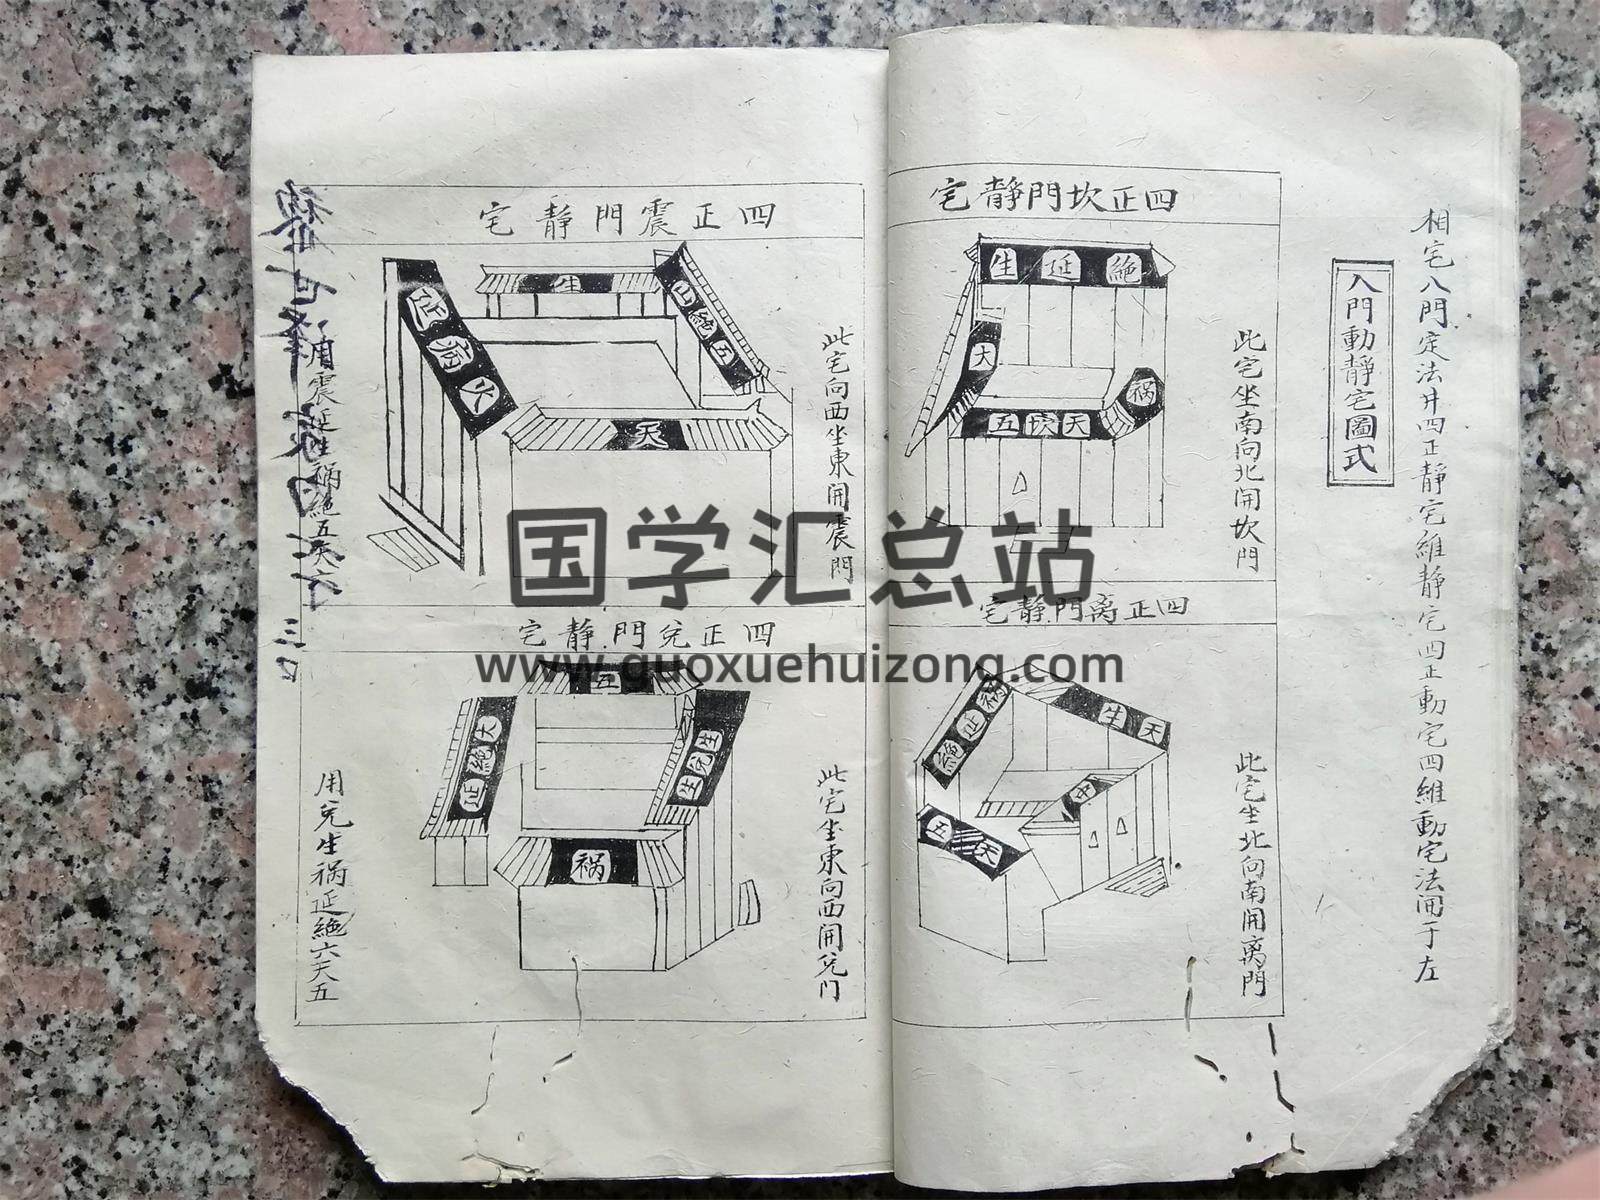 相宅八門定法廾四正靜宅維靜宅四正動宅四維動宅法開于左
八門動靜宅圖式
四正坎門靜宅
生延絶
大
禍
五坎天
此宅坐南向北開坎門
四正离門靜宅
禍延絶
生天
五六天
此宅坐北向南開离門
四正震門靜宅
生
延
火
絶五
天
此宅向西坐東開震門
用震延生禍絶五天六
四正兌門靜宅
五
六絶延
生兌生
禍
此宅坐東向西開兌门
用兌生禍延絶六天五
国学汇总站
www.guoxuehuizong.com